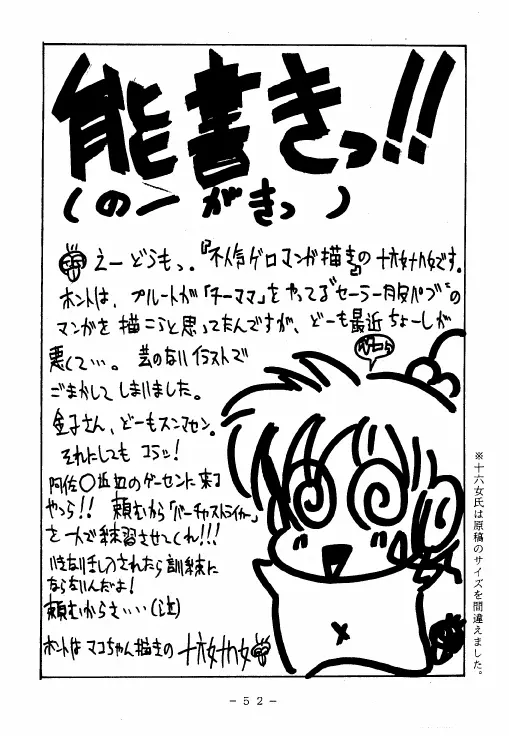 能書きっ!!
(のーがきっ)
えーどうもっ。『不人気ゲロマンガ描き』の十六女十八女です。
ホントは、プルートが「チーママ」をやってる"セーラー月夜パブ"の
マンガを描こうと思ってたんですが、どーも最近ちょーしが
悪くて…。芸のないイラストで
ごまかしてしまいました。
金子さん、どーもスンマセン。
それにしてもコラッ!
阿佐〇谷のゲーセンに来る
やつら!! 頼むから「バーチャストライカー」
を一人で練習させてくれ!!!
いきなり乱入されたら訓練に
ならないんだよ!
頼むからさ…(泣)
ホントはマコちゃん描きの十六女十八女
ペコら
※十六女氏は原稿のサイズを間違えました。
-52-